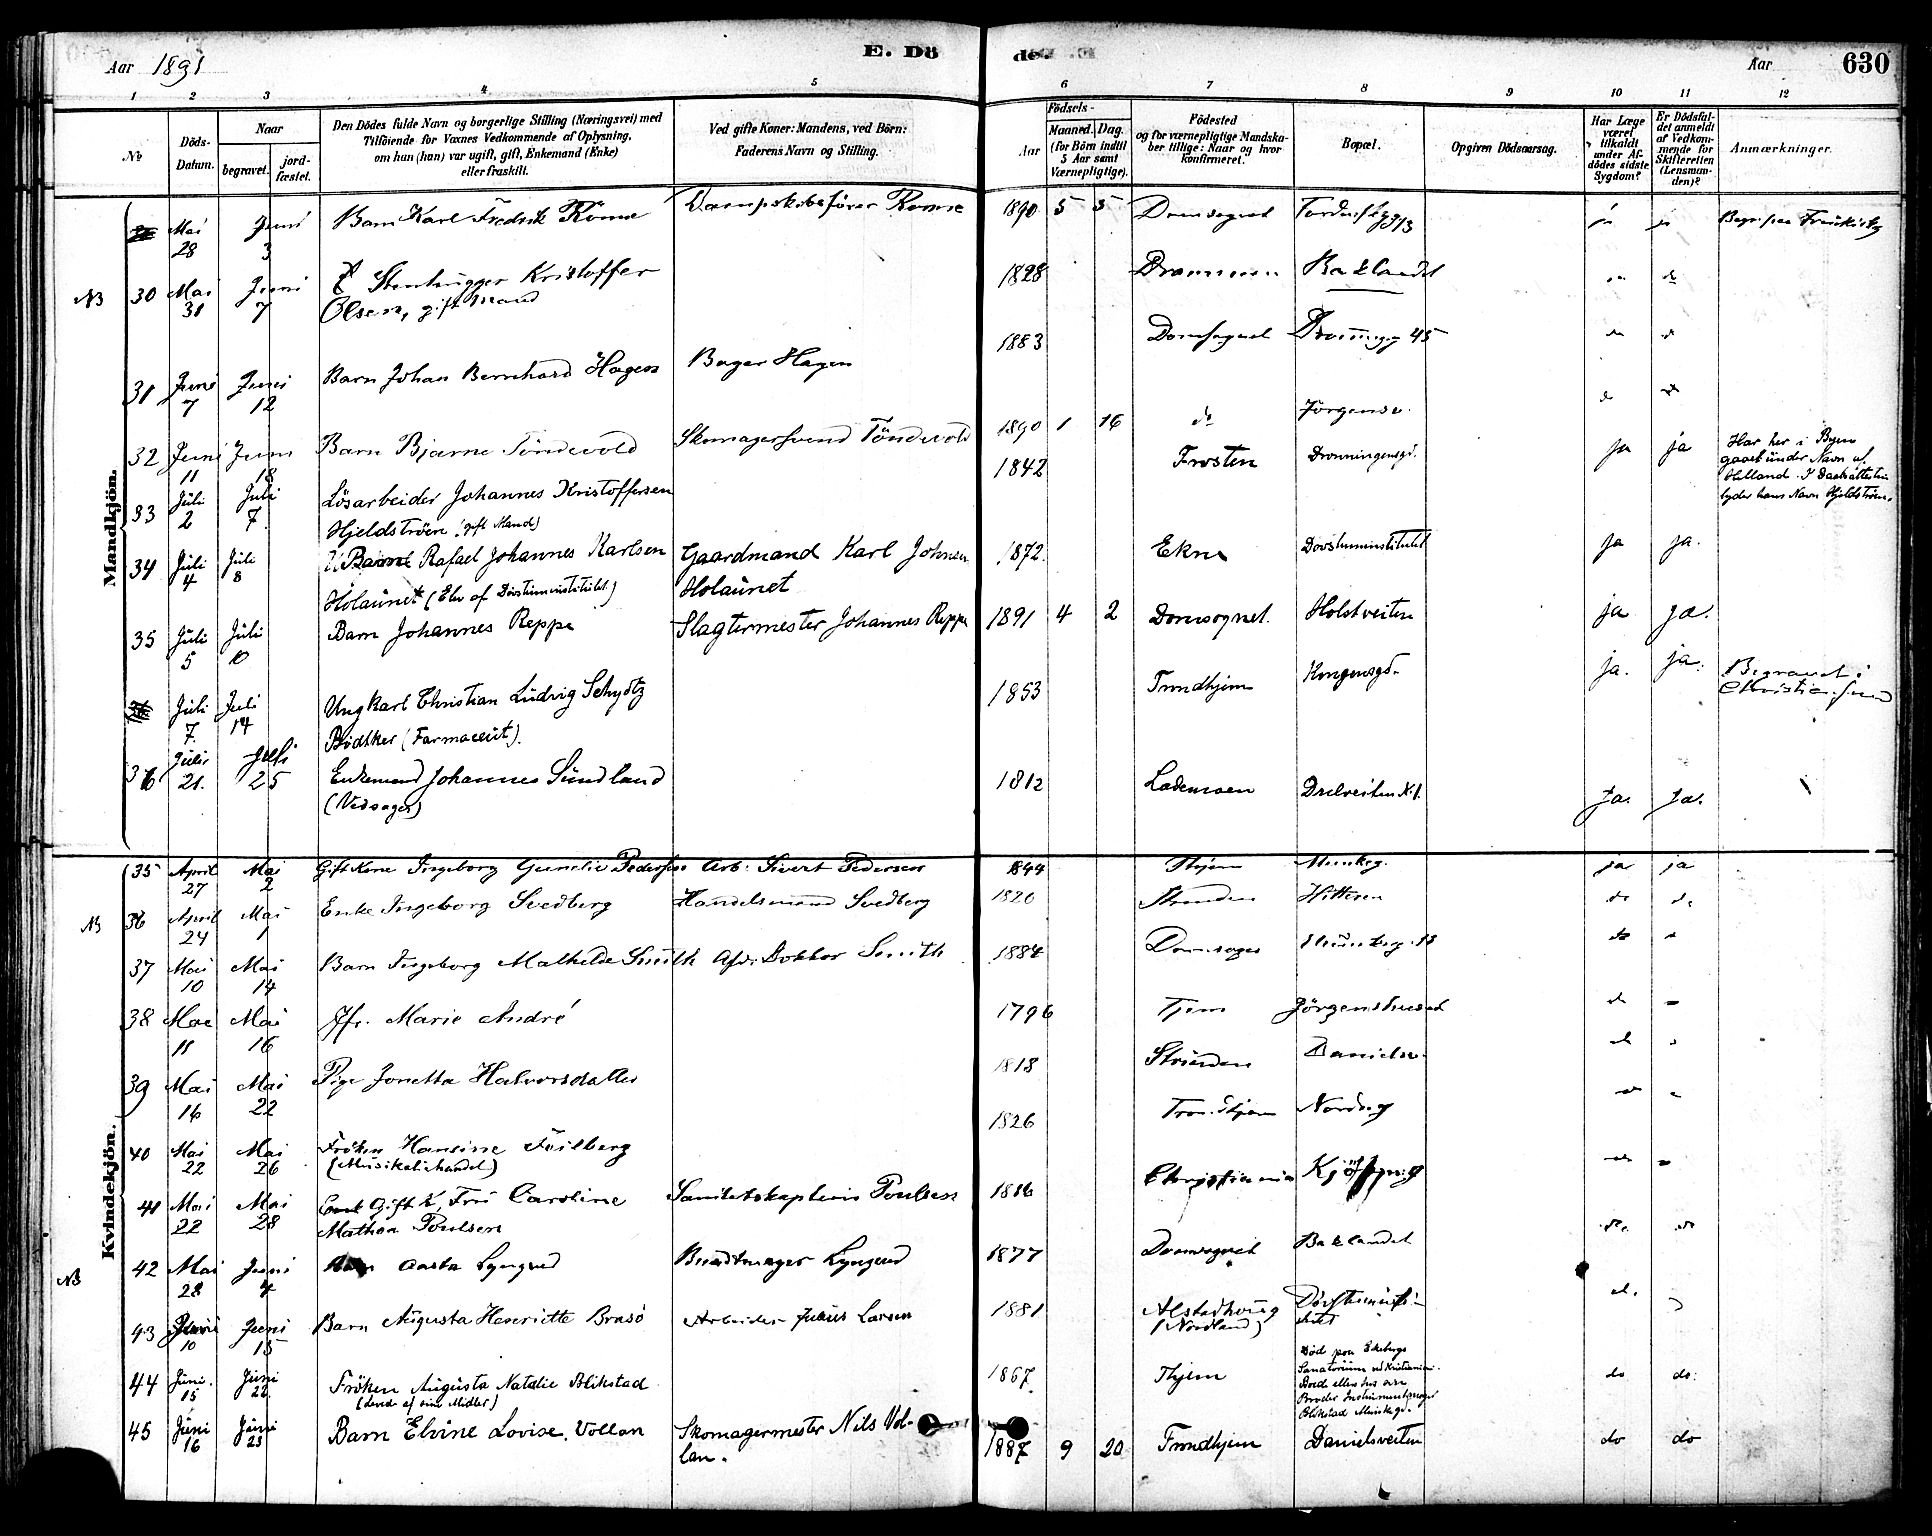 Aar 1891
E. Dö
de.
Aar
630
1 2 3 4 5 6 7 8 9 10 11 12
No
Döds-
Datum.
Naar
begravet.
jord-
fæstet.
Den Dödes fulde Navn og borgerlige Stilling (Næringsvei) med
Tilföiende for Voxnes Vedkommende af Oplysning,
om han (hun) var ugift, gift, Enkemand (Enke)
eller fraskilt.
Ved gifte Koner: Mandens, ved Börn:
Faderens Navn og Stilling.
Födsels-
Aar
Maaned. Dag.
(for Börn indtil
5 Aar samt
Værnepligtige).
Födested
og for værnepligtige Mandska-
ber tillige: Naar og hvor
konfirmeret.
Bopæl.
Opgiven Dödsaarsag.
Har Læge
været
tilkaldt
under Af-
dödes sidste
Sygdom?
Er Dödsfal-
det anmeldt
af Vedkom-
mende for
Skifteretten
(Lensman-
den)?
Anmærkninger.
Mandkjön.
Mai 28 Juni 3 Barn Karl Fredrik Römme Dampskibsförer Romme 1890 5 5 Domsognet ja ja
NB 30 Mai 31 Juni 7 Stenhugger Kristoffer
Olsen, gift Mand 1828 Drammen Baklandet do do
31 Juni 7 Juni 12 Barn Johan Bernhard Hagen Bager Hagen 1883 Domsognet Dronningg 45
32 Juni 11 Juni 18 Barn Bjarne Töndevold Skomagersvend Töndevold 1890 1 16 do Jörgensv.
33 Juli 2 Juli 7. Lösarbeider Johannes Kristoffersen
Hjeldströen. (gift Mand) 1842 Frosten Dronningensgd. ja ja Har her i Byen
gaaet under Navn af
Hilland. I Daabsattesten
lyder hans Navn Hjeldströen.
34 Juli 4 Juli 8 Rafael Johannes Karlsen
Holaunet (Elev af Dövstuminstitutet) Gaardmand Karl Johnsen
Holaunet 1872. Ekne Dovstuminstitutet ja ja.
35 Juli 5 Juli 10 Barn Johannes Reppe Slagtermester Johannes Reppe 1891 4 2 Domsognet. Holstveiten ja ja.
Juli 7. Juli 14 Ungkarl Christian Ludvig Schydtz
Bödtker (Farmaceut). 1853 Trondhjem Kongensgd. ja. ja. Begravet i
Christiansund
36 Juli 21. Juli 25 Enkemand Johannes Sundland
(Vedsager) 1812 Lademoen ja. ja.
Kvindekjön.
35 April 27 Mai 2 Gift Kone Ingeborg Gunelie Pedersen Arb. Sivert Pedersen 1844 Thjem Munkeg. ja ja
NB 36 April 24 Mai 1 Enke Ingeborg Svedberg Handelsmand Svedberg 1820 Strinden do do
37 Mai 10 Mai 14 Barn Ingeborg Mathilde Smith Afd. Doktor Smith 1884 Domsogn
38 Mai 11 Mai 16 Jfr. Marie André 1796 Tjem Jörgenshuset
39 Mai 16 Mai 22 Pige Jonetta Halvorsdatter 1818 Strinden Danielsv.
40 Mai 22 Mai 26 Fröken Hansine
(Musikalihandel) 1826 Trondhjem Nordreg
41 Mai 22 Mai 28 Gift K. Fru Caroline
Mathea Poulsen Sanitetskaptein Poulsen 1816 Christiania
NB 42 Mai 28 Juni 4 Aasta Lyngved Buntmager Lyngved 1877 Domsognet Baklandet
43 Juni 10 Juni 15 Barn Augusta Henriette Brasö Arbeider Julius Larsen 1881 Alstadhoug
(Nordland)
44 Juni. 15 Juni 22. Fröken Augusta Natalie Blikstad
(levede af sine Midler) 1867. Thjem Död paa Ekebergs
Sanatorium ved Kristiania.
Boede ellers hos sin
Broder Instrumentmager
Blikstad Munkegd. do do.
45 Juni 16 Juni 23 Barn Elvine Lovise. Vollan Skomagermester Nils Vol-
lan. 1887 9 20 Trondhjem Danielsveiten do do